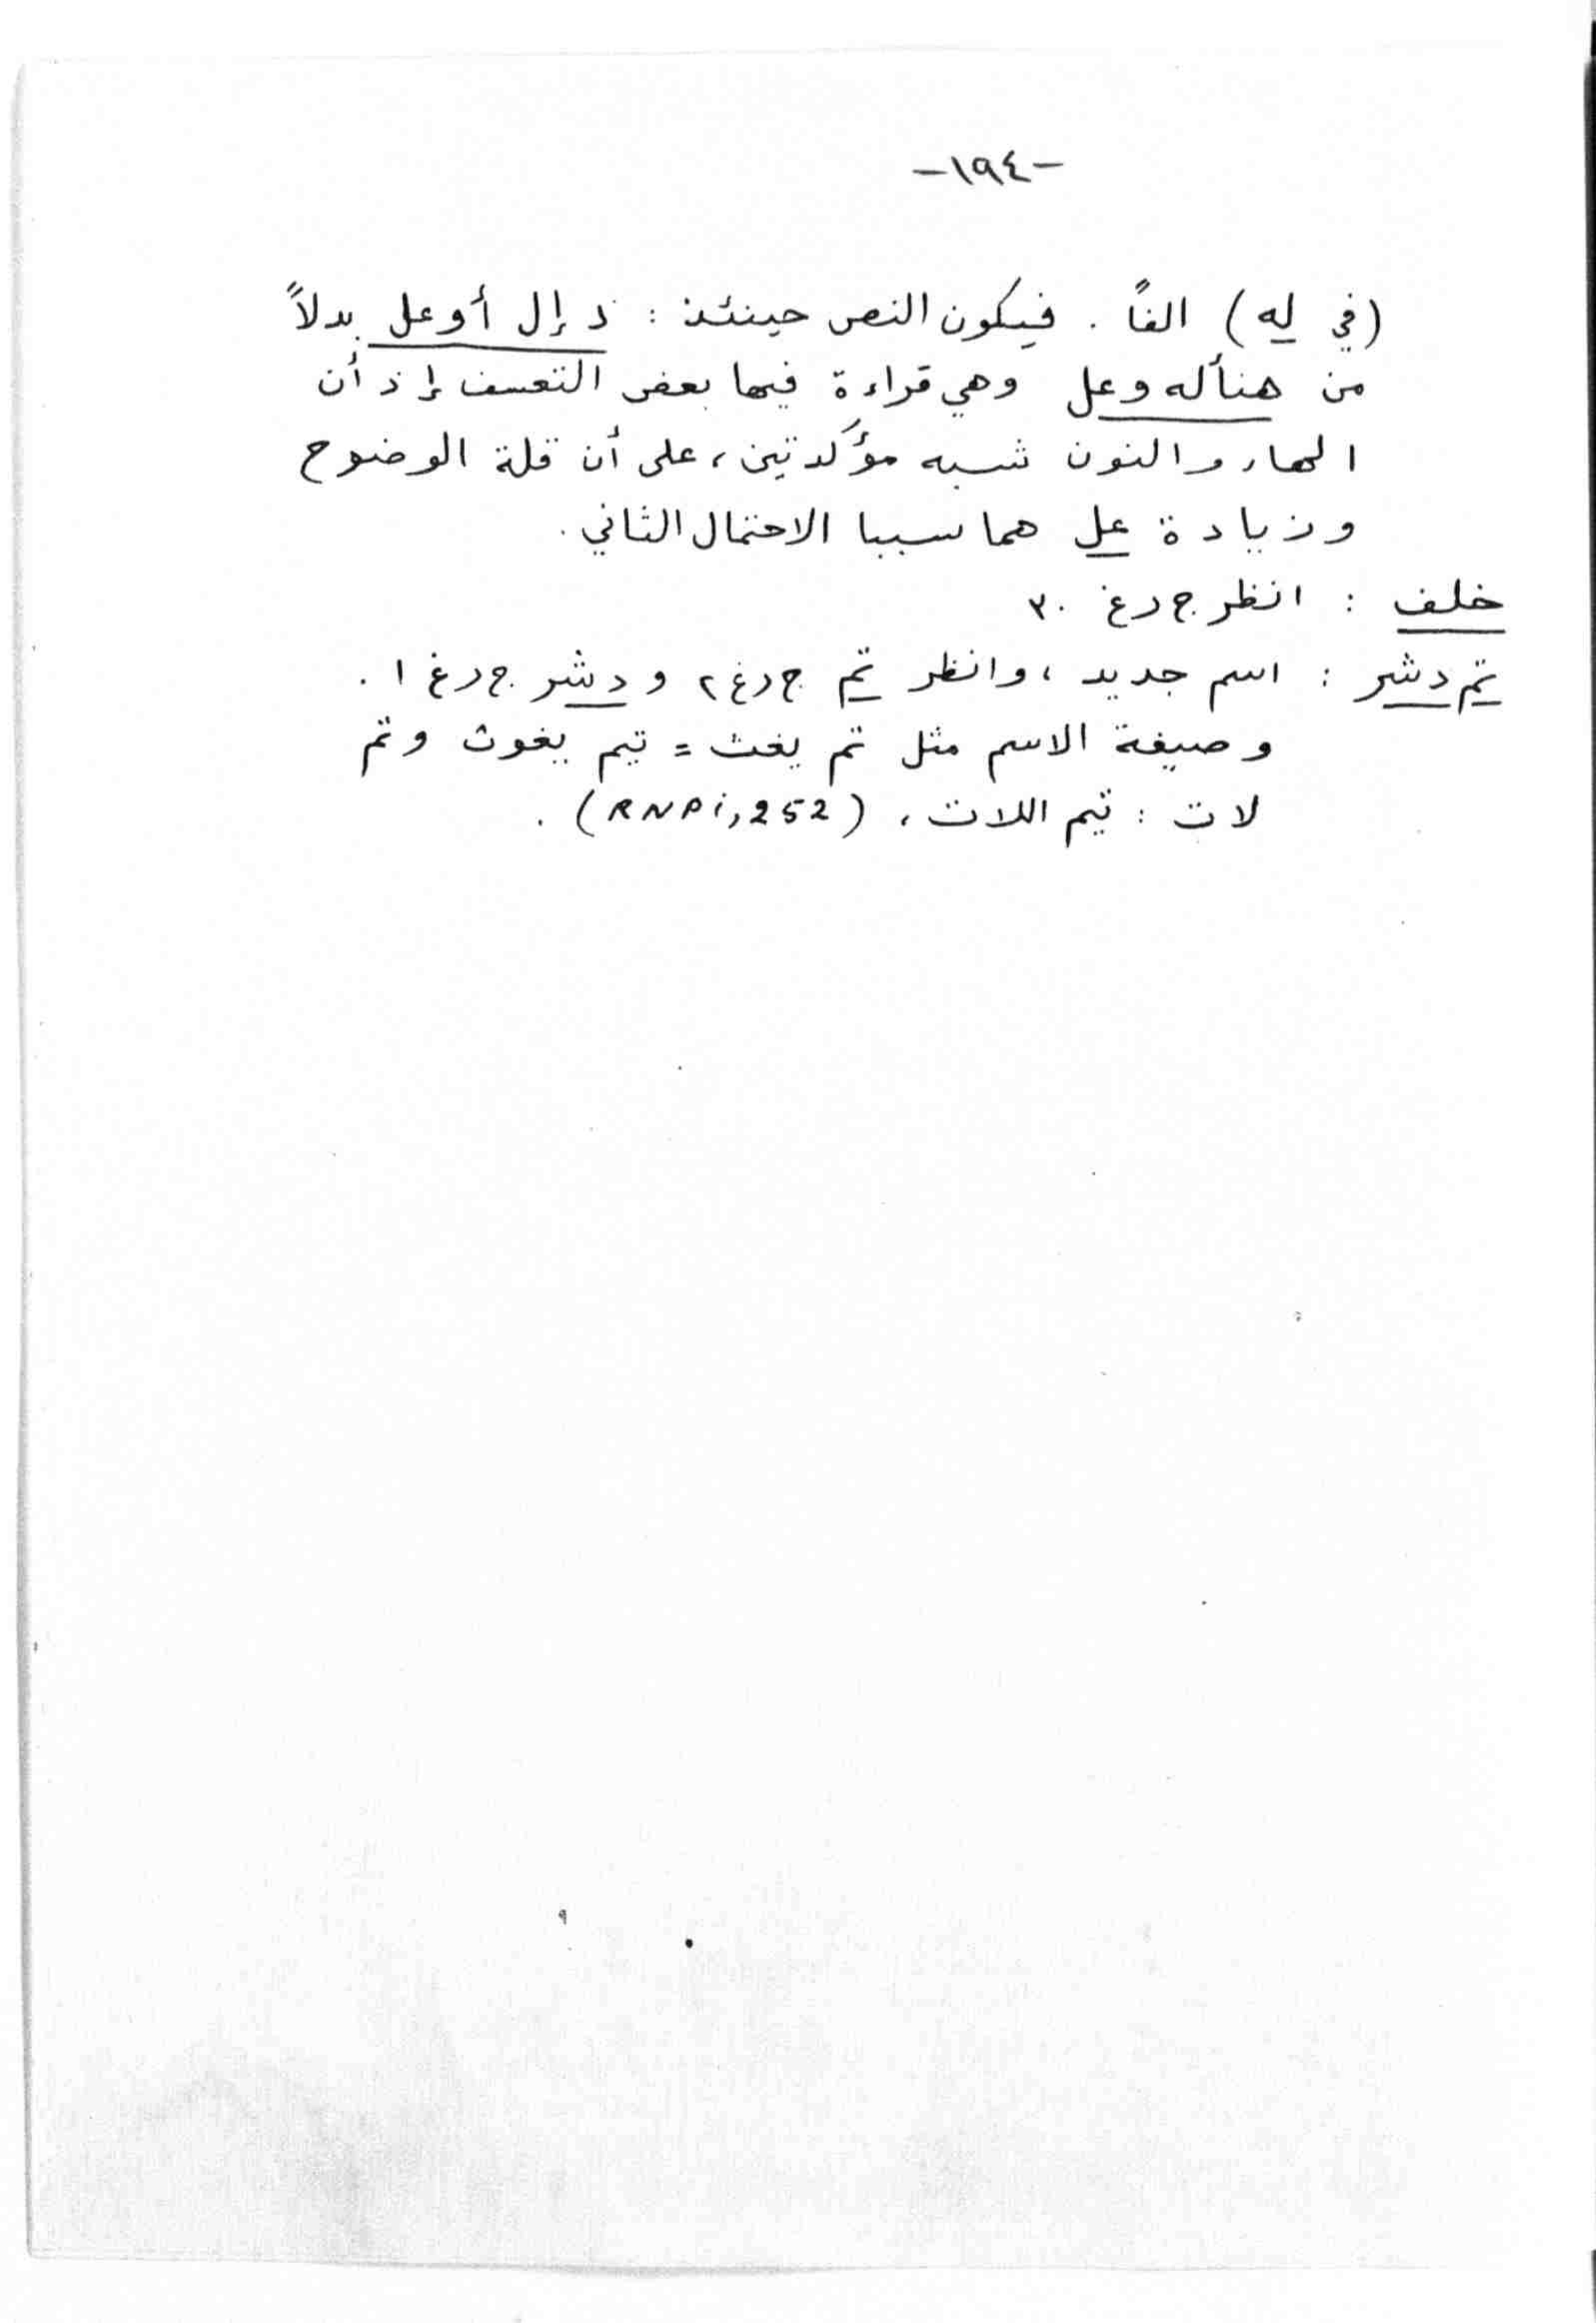 -١٩٤-
(في له) الفاً . فيكون النص حينئذ : ذ إل أوعل بدلاً
من هنأله وعل وهي قراءة فيها بعض التعسف إذ أن
الهاء والنون شبه مؤكدتين، على أن قلة الوضوح
وزيادة عل هما سببا الاحتمال الثاني.
خلف : انظر ج د غ ٣٠
تم دشر : اسم جديد ، وانظر تم ج د غ ٢ و دشر ج د غ ١ .
وصيغة الاسم مثل تم يغث = تيم يغوث وتم
لات : تيم اللات ، (RNPi,252) .